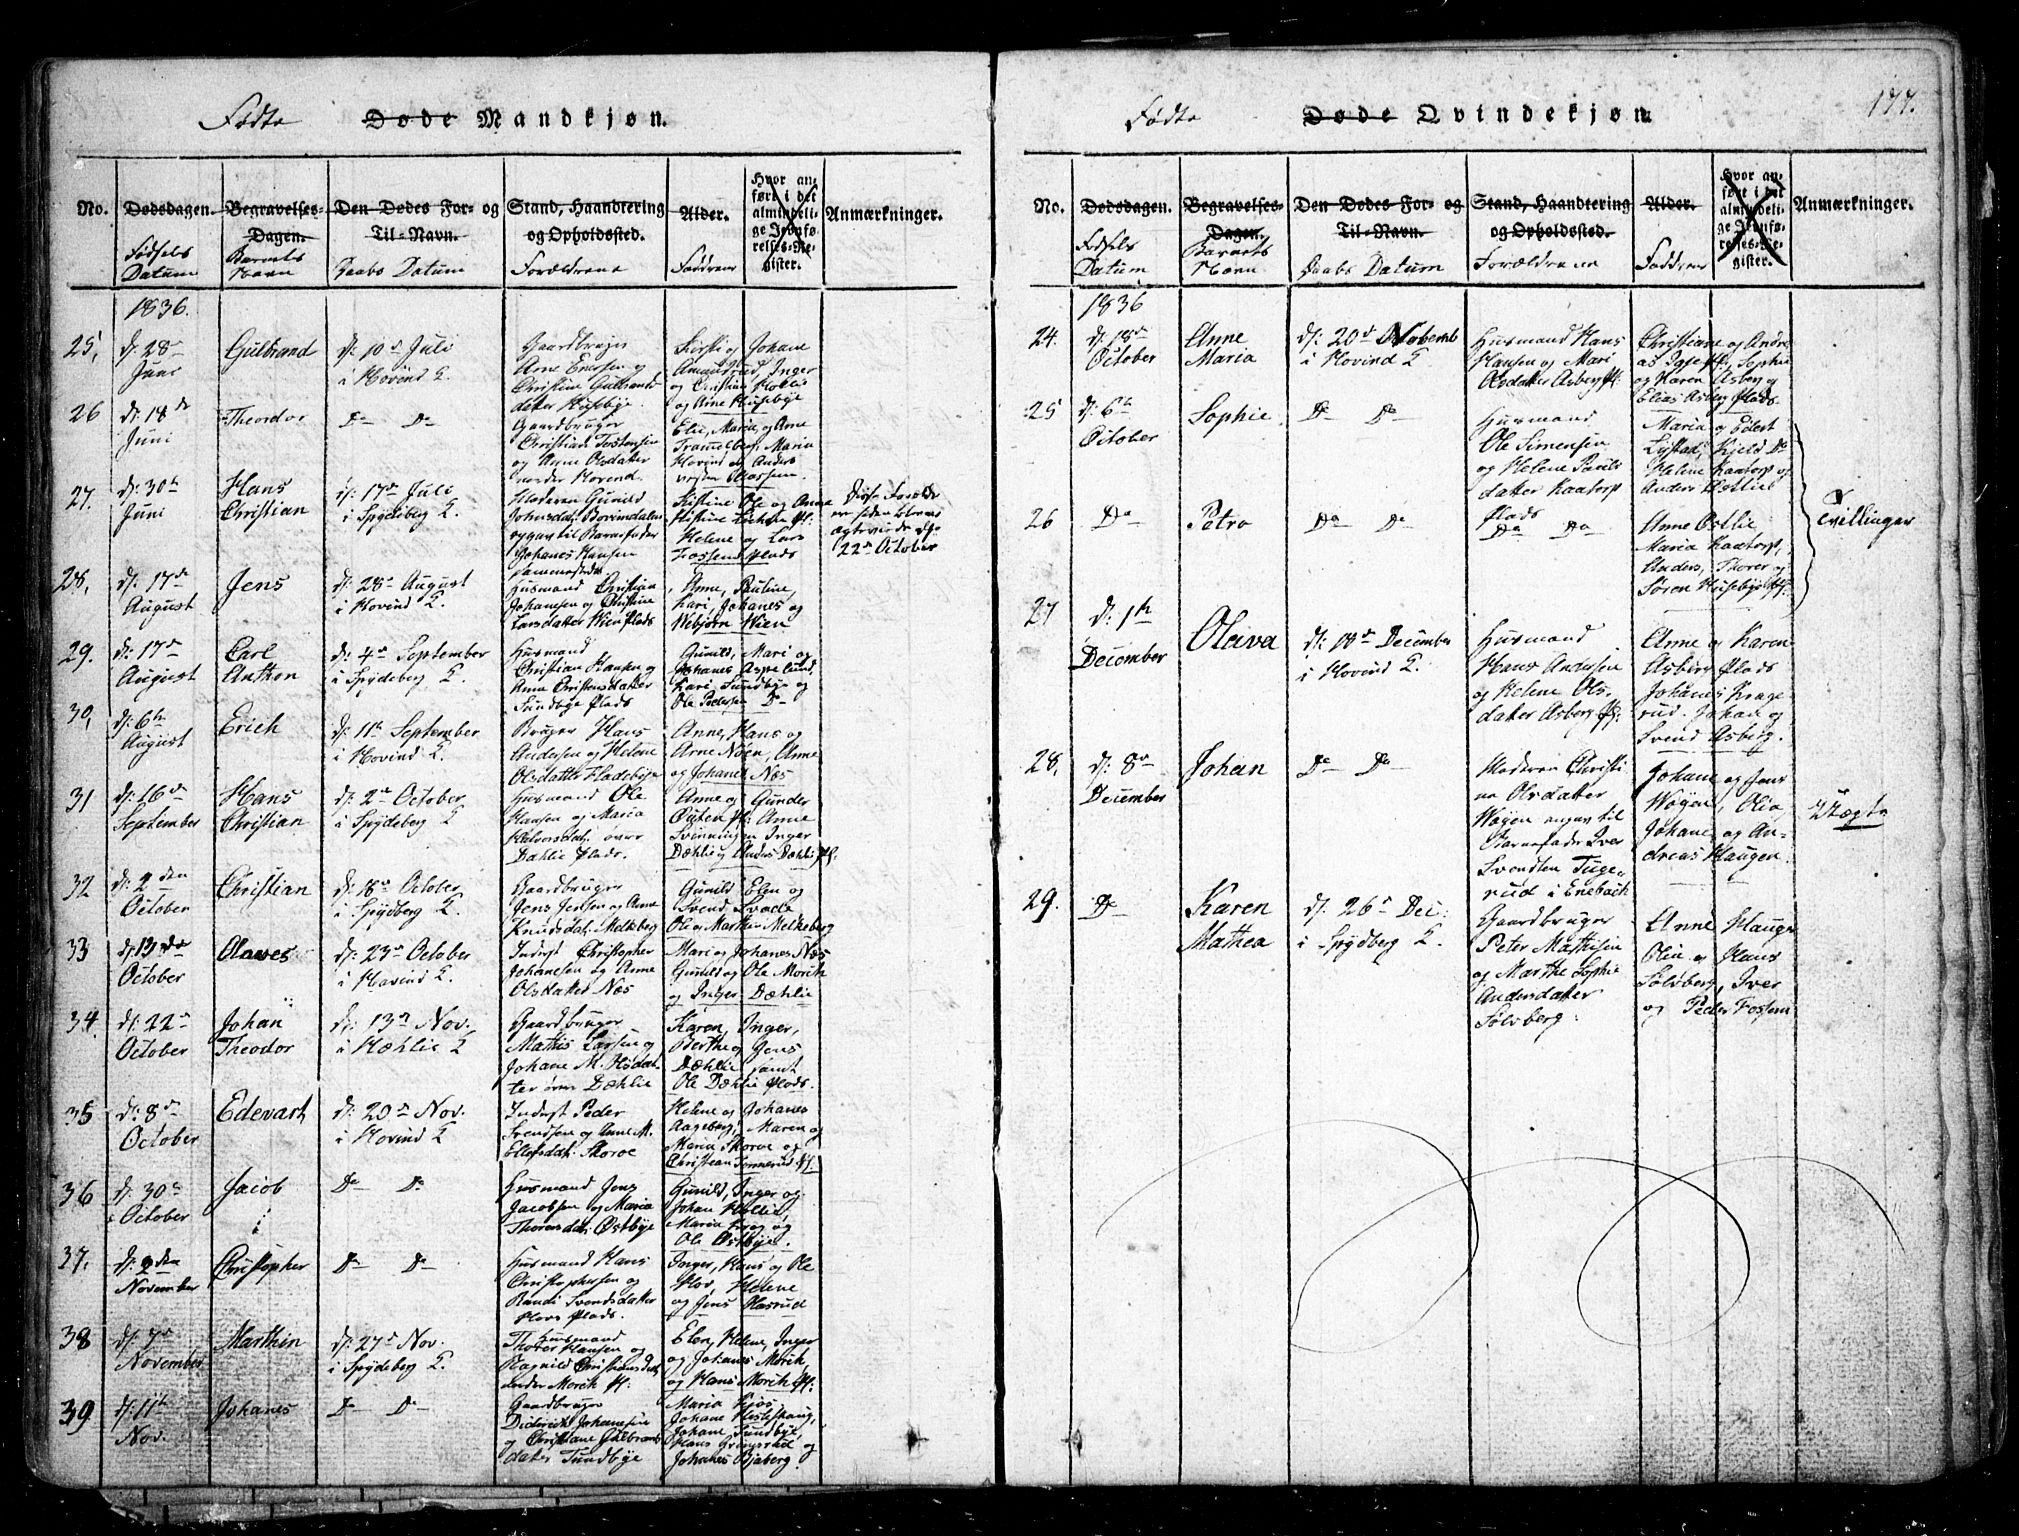 Fødte Døde Mandkjøn.
No.
Dødsdagen.
Fødsels
Datum
Begravelses-
Dagen.
Barnets
Navn
Den Dødes For- og
Til-Navn.
Daabs Datum
Stand, Haandtering
og Opholdssted.
Forældrene
Alder.
Faddrene
Hvor an-
ført i det
almindeli-
ge Jevnfø-
relses-Re-
gister.
Anmærkninger.
1836.
25,
d: 28
Juni
Gulbrand
d: 10 Juli
i Hovind K.
Gaardbruger
Arne Enersen og
Christine Gulbrands
datter Huseby
og Arne Husebye
26
d: 18de
Juni
Theodor
Do Do
Gaardbruger
Christian Torstensen
og Anne Olsdatter
nordre Hovend.
Elie, Maria, og Arne
Hovind og Anders
27.
d: 30te
Juni
Hans
Christian
d: 17de Juli
i Spydeberg K.
Moderen Gunild
opgav til Barnefader
Johanes Hansen
Helene og Lars
Fossum Plads
Disse Forældre
22de October
28,
d: 17de
August
Jens
d: 28 August
i Hovind K.
Husmand Christian
Johansen og Christine
Larsdatter Wien Plads
Anne, Pauline,
Kari, Johanes og
Webjørn Wien
29.
d: 17de
August
Carl
Anthon
d: 4de September
i Spydeberg K.
Husmand
Christian Hansen og
Anne Christensdatter
Sundbye Plads
Gunild, Mari og
Johanes Aspelund,
Kari Sundbye og
Ole Pedersen Do
30,
d: 6te
August
Erich
d: 11te September
i Hovind K.
Bruger Hans
Andersen og Helene
Olsdatter Hadebye
Anne, Hans og
Arne Nøen, Anne
og Johanes Næs
31
d: 16de
September
Hans
Christian
d: 2de October
i Spydeberg K
Husmand Ole
Hansen og Maria
Halvorsdat: over
Dæhlie Plads.
Anne og Gunder
Østen Pl: Anne
Svinningen Inger
Dæhlie og Anders Dæhlie Pl:
32
d: 2den
October
Christian
d: 18de October
i Spydberg K.
Gaardbruger
Jens Jensen og Anne
Knudsdat: Melkeberg
Gunild Elen og
Svend Svade
Ole og Marthin Melkeberg
33
d: 13de
October
Olaves
d: 23de October
i Hovind K.
Inderst Christopher
Johanesen og Anne
Olsdatter Næs
Mari og Johanes Næs
Gunild og Ole Morik
og Inger Dæhlie
34.
d: 22de
October
Johan
Theodor
d: 13de Nov.
i Hæhlie K
Gaardbruger
Mathis Larsen og
Johane M. Hødat-
ter øvre Dæhlie
Karen, Inger,
Berthe og Jens
Dæhlie samt
Ole Dæhlie Plads.
35
d: 8de
October
Edevart
d: 20de Nov.
i Hovind K
Inderst Peder
Svendsen og Anne M.
Ellefsdat: Skorve
Helene og Johanes
Aageberg, Maren og
Maria Skorve og
Christian Tømmerud Pl:
36
d: 30te
October
Jacob
Do Do
Husmand Jens
Jacobsen og Maria
Thorersdat: Østbye
Gunild, Inger og
Johan Hollie
Maria Krog og
Ole Østbye.
37.
d: 2den
November
Christopher
Do Do
Husmand Hans
Christophersen og
Randi Svendsdatter
Hovs Plads.
Inger, Hans og Ole
Hov, Helene
og Jens Olasrud
38
d: 7de
November
Marthin
d: 27de Nov.
i Spydeberg K.
Husmand
Thorer Hansen og
Ragnild Christiansdat:
under Morik Pl:
Elen, Helene, Inger
og Johanes Morik,
og Hans Morik Pl:
39
d: 11te
Nov.
Johanes
Do Do
Gaardbruger
Diderich Johanesen
og Christiane Gulbrans
datter Sundbye
Maria Kjos,
Johan Sundbye,
Johanes Bjaberg.
177.
Fødte Døde Qvindekjøn
No.
Dødsdagen.
Fødsels
Datum
Begravelses-
Dagen.
Barnets
Navn
Den Dødes For- og
Til-Navn.
Daabs Datum
Stand, Haandtering
og Opholdssted.
Forældrene
Alder.
Faddrene
Hvor an-
ført i det
almindeli-
ge Jevnfø-
relses-Re-
gister.
Anmærkninger.
1836
24.
d: 18de
October
Anne
Maria
d: 20de Novemb
i Hovind K
Husmand Hans
Hansen og Mari
Olsdatter Asberg Pl:
Christiane og Andre
og Karen Asberg og
25
d: 6te
October
Sophie
Do Do
Husmand
Ole Simensen
og Helene Pauls
datter Kaatorp
Plads
Maria og Edest
Lystad, Kjeld Do
Helene Kaatorp og
Anders Østlie
Tvillinger
26
Do
Petra
Do Do
Do Do
Anne Østlie
Maria Kaatorp,
Anders, Thorer og
Søren Husebye Pl:
27
d: 1te
December
Olava
d: 18de December
i Hovind K.
Husmand
Hans Andersen
og Helene Ols-
datter Asberg Pl:
Anne og Karen
Asberg Plads
Johanes Krage-
rud. Johan og
Svend Asberg.
28,
d: 8de
December
Johan
Do Do
Moderen Christi
ne Olsdatter
Wøyen angav til
Barnefader Iver
Svendsen Tuge-
rud i Enebach
Johane og Jens
Wøyen, Olia,
Johane og An-
dreas Haugen.
Uægte
29.
Do
Karen
Mathea
d: 26de Dec:
i Spydberg K.
Gaardbruger
Peter Mathisen
og Marthe Sophie
Andersdatter
Sølvberg.
Anne Hauge
Olia og Hans
Sølvberg, Iver
og Peder Fossum